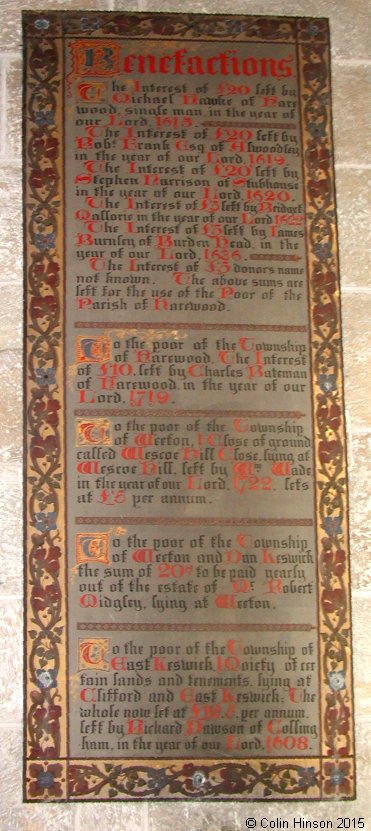 Benefactions.
The Interest of £20 left by
Michael Hawke of Hare
wood, single man, in the year of
our Lord, 1615.
The Interest of £20 left by
Robt Frank Esq of Alwoodley
in the year of our Lord, 1619.
The Interest of £20 left by
Stephen Harrison of Stubhouse
in the year of our Lord, 1620.
The Interest of £5 left by Bridget
Mallorie in the year of our Lord 1622
The Interest of £5 left by James
Burnley of Burden Head, in the
year of our Lord, 1626.
The Interest of £3 donors name
not known. The above sums are
left for the use of the Poor of the
Parish of Harewood.
To the poor of the Township
of Harewood, The Interest
of £10. left by Charles Bateman
of Harewood, in the year of our
Lord, 1719.
To the poor of the Township
of Weeton, 1 Close of ground
called Wescoe Hill Close, lying at
Wescoe Hill, left by Wm Wade,
in the year of our Lord, 1722. lets
at £5 per annum.
To the poor of the Township
of Weeton and Dun Keswick
the sum of 20s to be paid yearly
out of the estate of Mr Robert
Midgley, lying at Weeton.
To the poor of the Township of
East Keswick, 1 Moiety of cer
tain lands and tenements, lying at
Clifford and East Keswick. The
whole now let at per annum,
left by Richard Dawson of Colling
ham, in the year of our Lord, 1608.
© Colin Hinson 2015